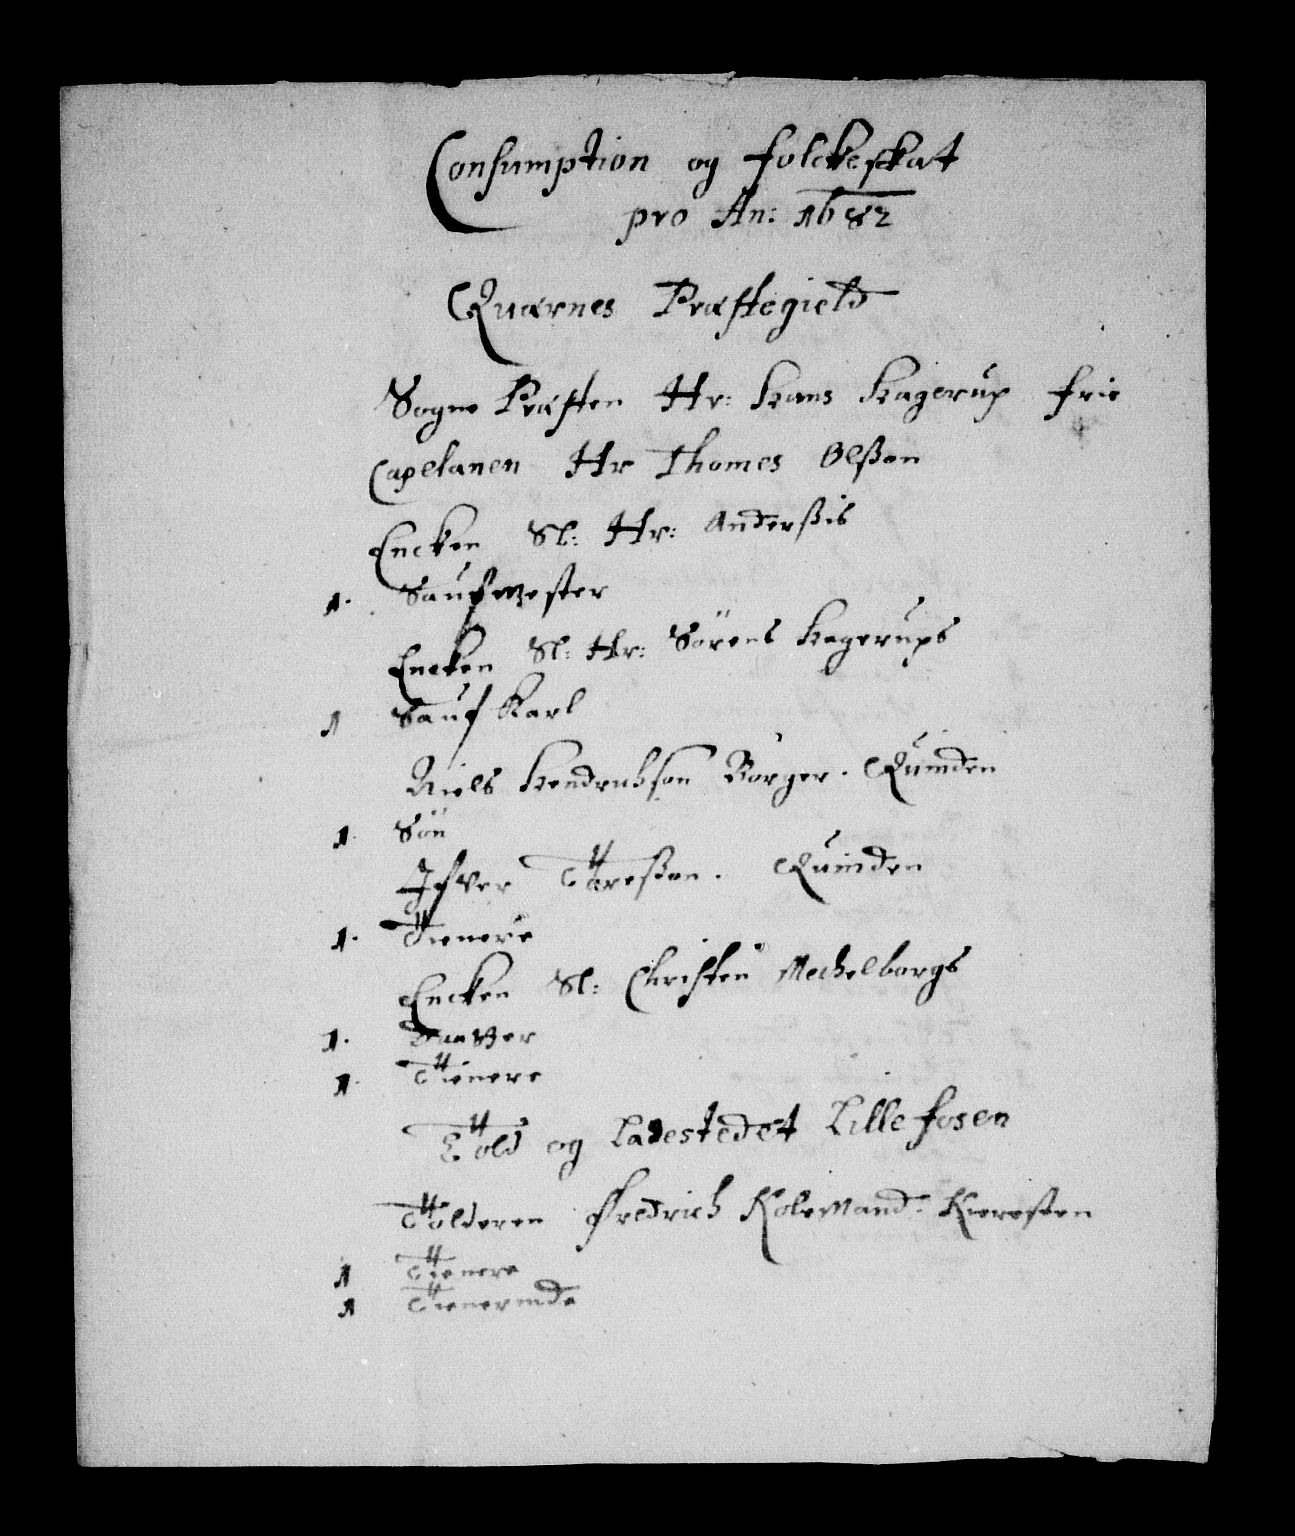 Consumption og folckeskat
pro An: 1682
Quærnes Præstegield
Sogne Præsten Hr: Hans Hagerup frie
Capellanen Hr Thomes Olßøn
Encken Sl: Hr: Anderßis
1. Haufmester
Encken Sl: Hr: Sörens Hagerups
1 Hauf Karl
Niels Hendrichsøn Borger. Quinden
1. Sön
Ifver Toreßøn. Quinden
1. Tienere
Encken Sl: Christen Mechelborgs
1.
1. Tienere
Told og Ladestedet Lille fosen
Tolderen Fredrich Kolemand. Kieresten
1 Tienere
1 Tienerinde